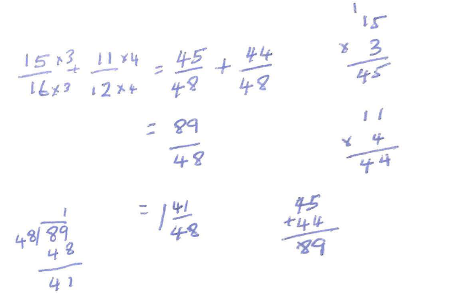 15 ×3 / 16 ×3 + 11 ×4 / 12 ×4 = 45/48 + 44/48
= 89/48
= 1 41/48
1
15
× 3
45
11
× 4
44
1
48/89
48
41
45
+44
89